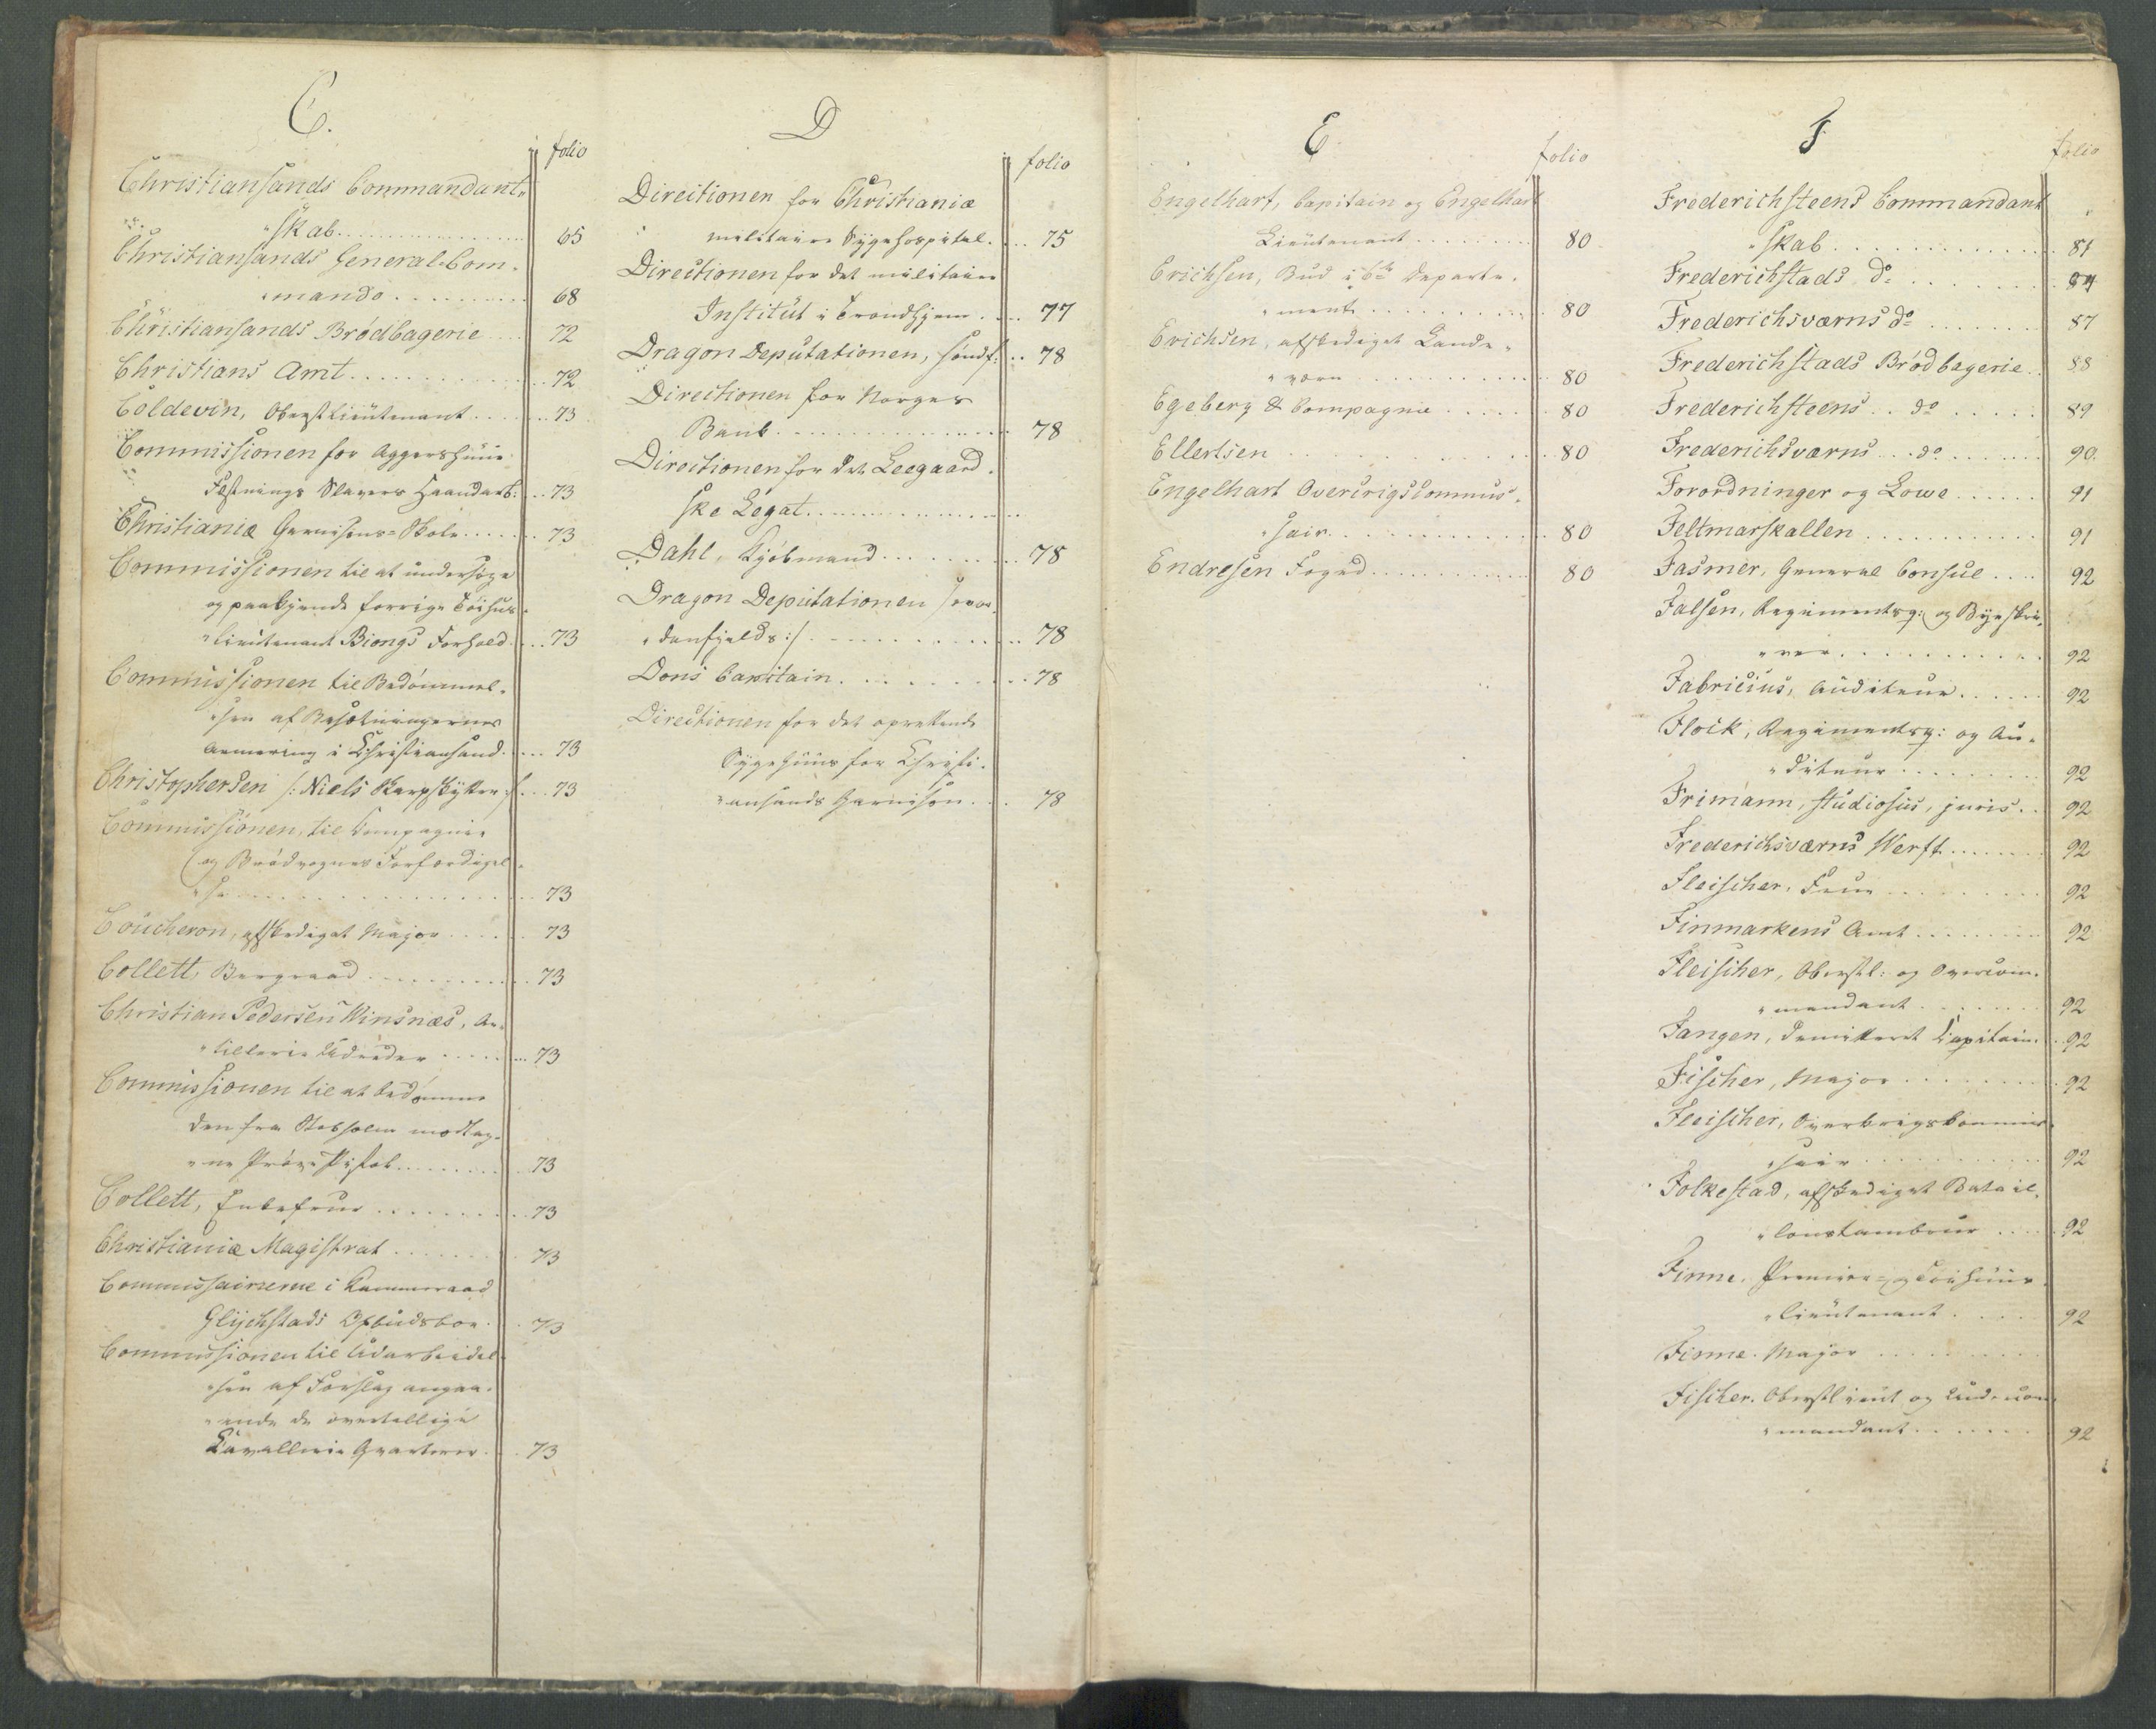 C.
folio
Christiansands Commandant-
"skab 65
Christiansands General-Com-
"mando 68
Christiansands Brødbagerie 72
Christians Amt 72
Coldevin, Oberstlieutenant 73
Commissionen for Aggershuus
Festnings Slavers Haandarb: 73
Christiania Garnisons-Skole 73
Commissionen til at undersøge
og paakjende forrige Tøihus-
"lieutenant Biongs Forhold 73
Commissionen til Bedømmel-
"sen af Besætningernes
Armering i Christiansand 73
Christophersen /: Niels Skarpskytter :/ 73
Commissionen, til Compagnie
og Brødvognes Forfærdigel-
"se 73
Coucheron, afskediget Major 73
Collett, Bergraad 73
Christian Pedersen Winsnæs, Ar-
"tillerie Udrider 73
Commissionen til at bedømme
den fra Stokholm modtag-
"ne Prøve Pistol 73
Collett, Enkefrue 73
Christiania Magistrat 73
Commissairierne i Kammerraad
Glychstads Opbudsboe 73
Commissionen til Udarbeidel-
"sen af Forslag angaa-
"ende de overtallige
Cavallerie Qvarterer 73
D
folio
Directionen for Christiania
militaire Sygehospital 75
Directionen for det militaire
Institut i Trondhjem 77
Dragon Deputationen, søndf: 78
Directionen for Norges
Bank 78
Directionen for det Leegaard-
ske Legat
Dahl, Kjøbmand 78
Dragon Deputationen /:nor-
"denfjelds:/ 78
Dons Capitain 78
Directionen for det oprettende
Sygehuus for Christi-
"ansands Garnison 78
E
folio
Engelhart, Capitain og Engelhart
Lieutenant 80
Erichsen, Bud i 6te Departe-
"ment 80
Erichsen, afskediget Lande-
"værn 80
Egeberg & Compagnie 80
Ellertsen 80
Engelhart Overcrigscommis-
"sair 80
Endresen Foged 80
F
folio
Frederichsteens Commandant
"skab 81
Frederichstads do 84
Frederichsværns do 87
Frederichstads Brødbagerie 88
Frederichsteens do 89
Frederichsværns do 90
Forordninger og Lowe 91
Feltmarskallen 91
Fasmer, General Consul 92
Falsen, Regimentsq: og Byeskri-
"ver 92
Fabricius, Auditeur 92
Flock, Regimentsq: og Au-
"diteur 92
Frimann, studiosus, juris 92
Frederichsværns Werft 92
Fleischer, Frue 92
Finmarkens Amt 92
Fleischer, Oberstl: og Overcom-
"mandant 92
Fangen, demitteret Capitain 92
Fischer, Major 92
Fleischer, Overkrigskommis-
"sair 92
Folkestad, afskediget Batail-
"lonstambour 92
Finne, Premier- og Tøihuus-
"lieutenant 92
Finne, Major
Fischer, Oberstlieut og
"mandant 92